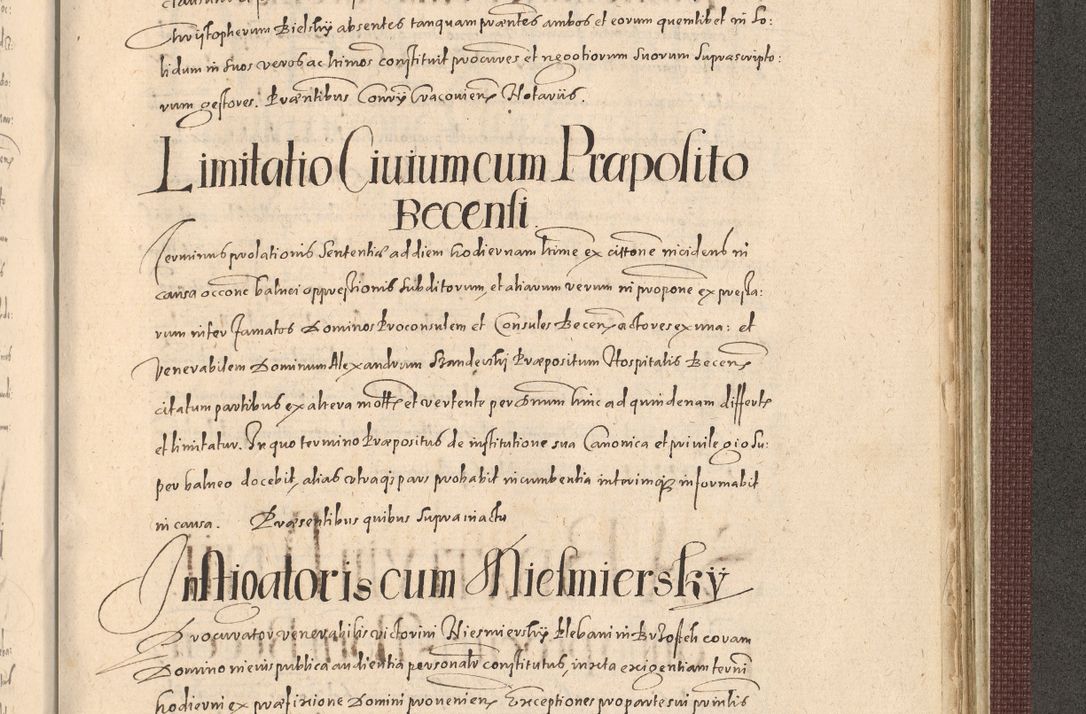 Christopherum Bielsky absentes tanquam præntes ambos et eorum quemlibet in so:
lidum in suos veros ac ltimos constituit procures et negotiorum suorum suprascripto:
rum gestores. Præntibus Conry Cracovien Notarüs.
Limitatio Ciuium cum Præposito
Becensi.
Terminus prolationis sententiæ ad diem hodiernam ltime ex cittone incidens in
causa occone balnei oppressionis subditorum, et aliarum rerum in propone expressa:
rum inter famatos Dominos Proconsulem et Consules Becen actores ex vna: et
Venerabilem Dominum Alexandrum Præpositum Hospitalis Becen
citatum partibus ex altera et vertente per Dnum hinc ad quindenam differtr
et limitatur. In quo termino Præpositus de institutione sua Canonica et privilegio su:
per balneo docebit, alias vtraqz pars probabit incumbentia interimqz informabit
in causa. Præsentibus quibus supra in actu
Instigatoris cum Niesmierskÿ
Procurator venerabilis victorini Niesmiersky Plebani in coram
Domino in eius publica audientia personalr constitutus, iuxta exigentiam termi
hodierni ex præfixione Domini provenien Exceptiones pro parte sui prinlis